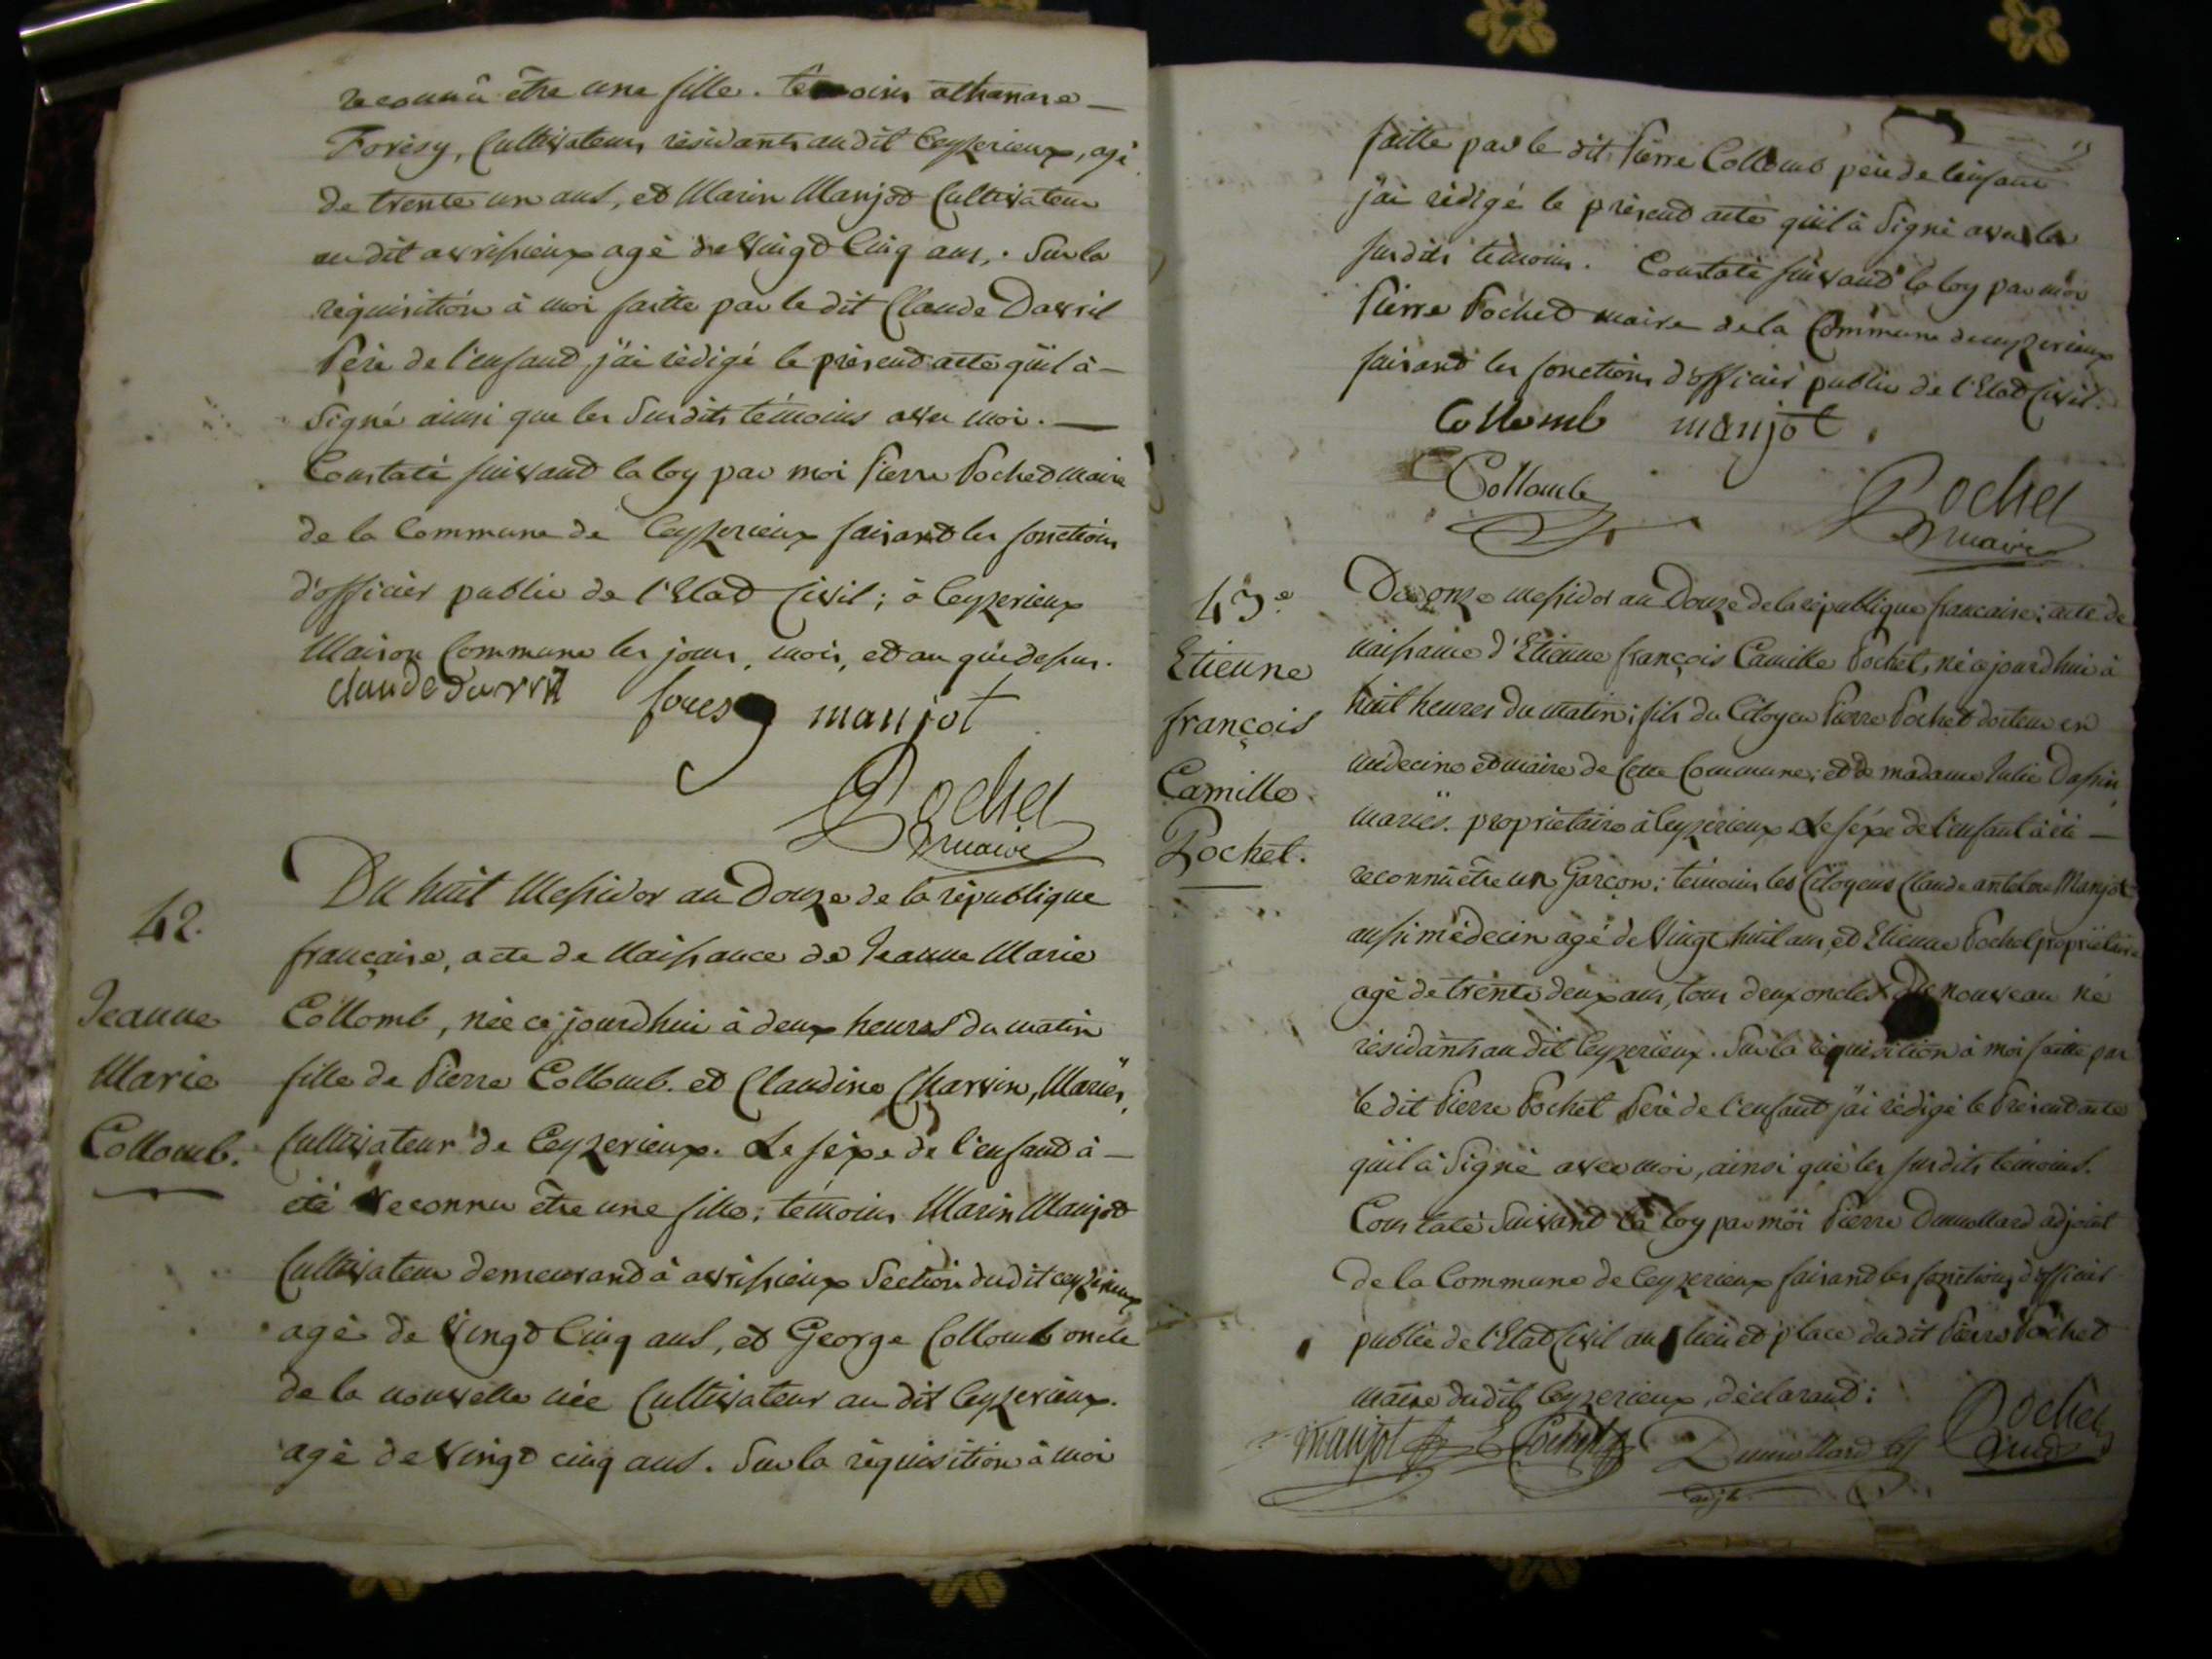 reconnû être une fille. temoins athanase —
Forésy, Cultivateurs résidants au dit Ceyzerieux, agé
de trente un ans, et Marin Manjot Cultivateur
au dit avrissieux agé de Vingt Cinq ans,. Sur la
réquisition à moi faitte par le dit Claude Davril
Père de l'enfant, j'ai rédigé le présent acte qu'il à —
Signé ainsi que les Susdits témoins avec moi. —
Constaté suivant la loy par moi Pierre Pochet maire
de la Commune de Ceyzerieux faisant les fonctions
d'officier public de l'Etat Civil; à Ceyzerieux
Maison Commune les jour, mois, et an que dessus.
claude davril foresy manjot
Pochet
maire
42.
Jeanne
Marie
Collomb.
Du huit Messidor an Douze de la république
française, acte de Naissance de Jeanne Marie
Collomb, née ce jourd'hui à deux heures du matin
fille de Pierre Collomb. et Claudine Charvin, Mariés,
Cultivateur de Ceyzerieux. Le sexe de l'enfant à —
été reconnu être une fille; témoins Marin Manjot
Cultivateur demeurant à avrissieux Section dudit ceyzerieux
agé de Vingt Cinq ans, et George Collomb oncle
de la nouvelle née Cultivateur au dit Ceyzerieux.
agé de Vingt cinq ans. Sur la réquisition à moi
faitte par le dit Pierre Collomb père de l'enfant
j'ai rédigé le présent acte qu'il à Signé avec les
susdits témoins. Constaté suivant la loy par moi
Pierre Pochet maire de la Commune de ceyzerieux
faisant les fonctions d'officier public de l'Etat Civil.
Collomb manjot
Collomb
Pochet
maire
43e
Etienne
françois
Camille
Pochet.
Du onze messidor an Douze de la république francaise; acte de
naissance d'Etienne françois Camille Pochet, né ce jourd'hui à
huit heures du matin; fils du Citoyen Pierre Pochet docteur en
médecine et maire de Cette Commune; et de madame Julie Dassin,
mariés. propriétaire à Ceyzerieux. Le sexe de l'enfant à été —
reconnû être un Garçon; témoins les Citoyens Claude antelme Manjot
aussi médecin agé de Vingt huit ans, et Etienne Pochet propriétaire
agé de trente deux ans, tous deux oncles du nouveau né
résidants au dit Ceyzerieux. Sur la réquisition à moi faitte par
le dit Pierre Pochet Père de l'enfant j'ai rédigé le Présent acte
qu'il à Signé avec moi, ainsi que les susdits témoins.
Constaté Suivant la loy par moi Pierre Dumollard adjoint
de la Commune de Ceyzerieux faisant les fonctions d'officier
public de l'Etat Civil au lieu et place du dit Pierre Pochet
maire dudit Ceyzerieux, déclarant;
manjot E Pochet Dumollard Pochet
adjt